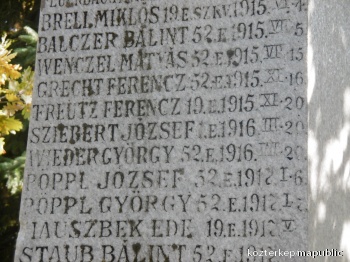 BRELL MIKLÓS 19.E.SZKV. 1915.
BALCZER BÁLINT 52.E. 1915. 5
WENCZEL MÁTYÁS 52.E. 1915. 15
GRECHT FERENCZ 52.E. 1915. XI-16
TREUTZ FERENCZ 19.E. 1915. XI-20
SZIEBERT JÓZSEF 1.E. 1916. III-28
WIEDER GYÖRGY 52.E. 1916. 20
PÖPPL JÓZSEF 52.E. 1917. I-6
PÖPPL GYÖRGY 52.E. 1917. I-7
HAUSZBEK EDE 19.E. 1917. V
STAUB BÁLINT 52.E
kozterkep.mapublic